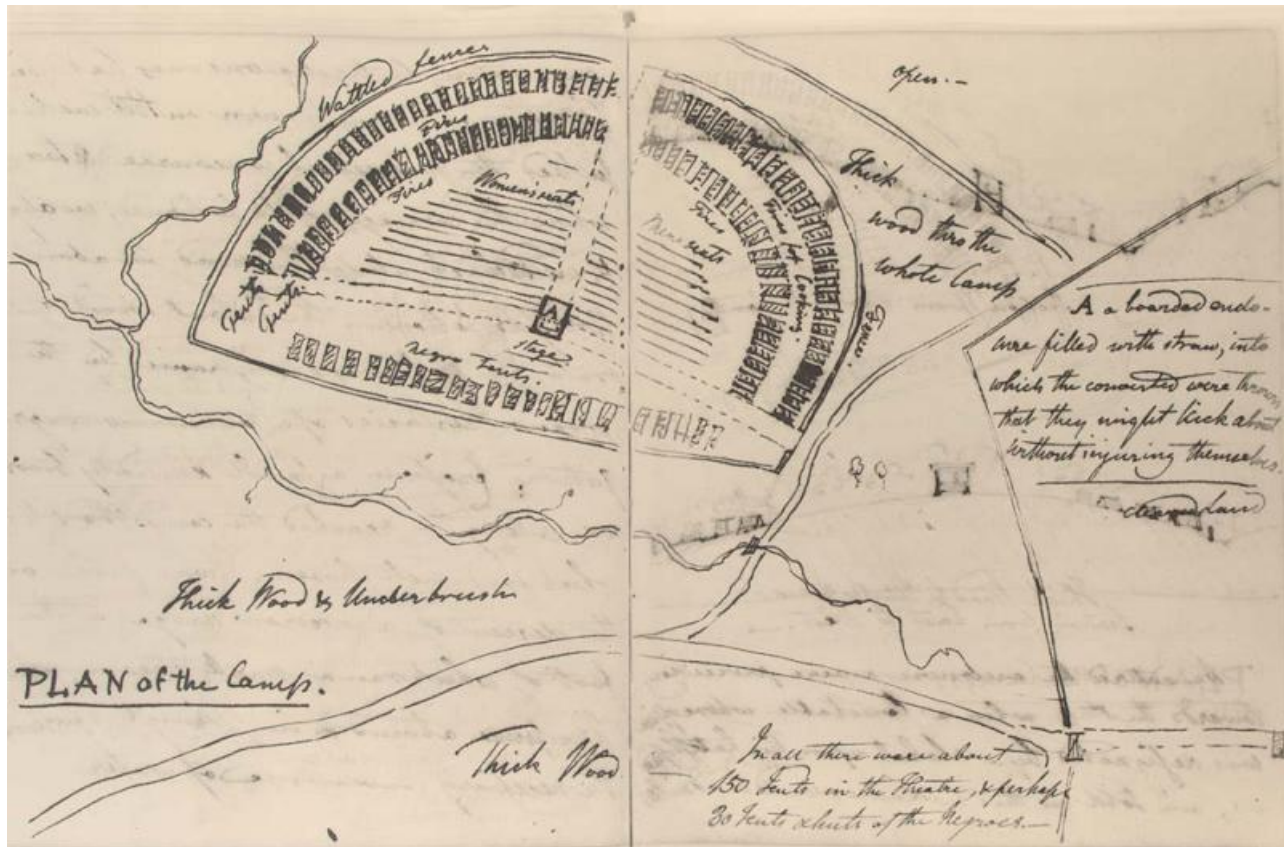 Wattled fences
Fires
Fires
Women's seats
Tents
Tents
A
Stage
Negro Tents.
Mens seats
Fires
Fires for Cooking
Fences
open.—
Thick
wood thro the
whole Camp
A a boarded enclo-
sure filled with straw, into
which the converted were thrown
that they might kick about
without injuring themselves.
cleared Land
Thick Wood & Underbrush
PLAN of the Camp.
Thick Wood
In all there were about
150 Tents in the Theatre, & perhaps
30 Tents & huts of the Negroes.—